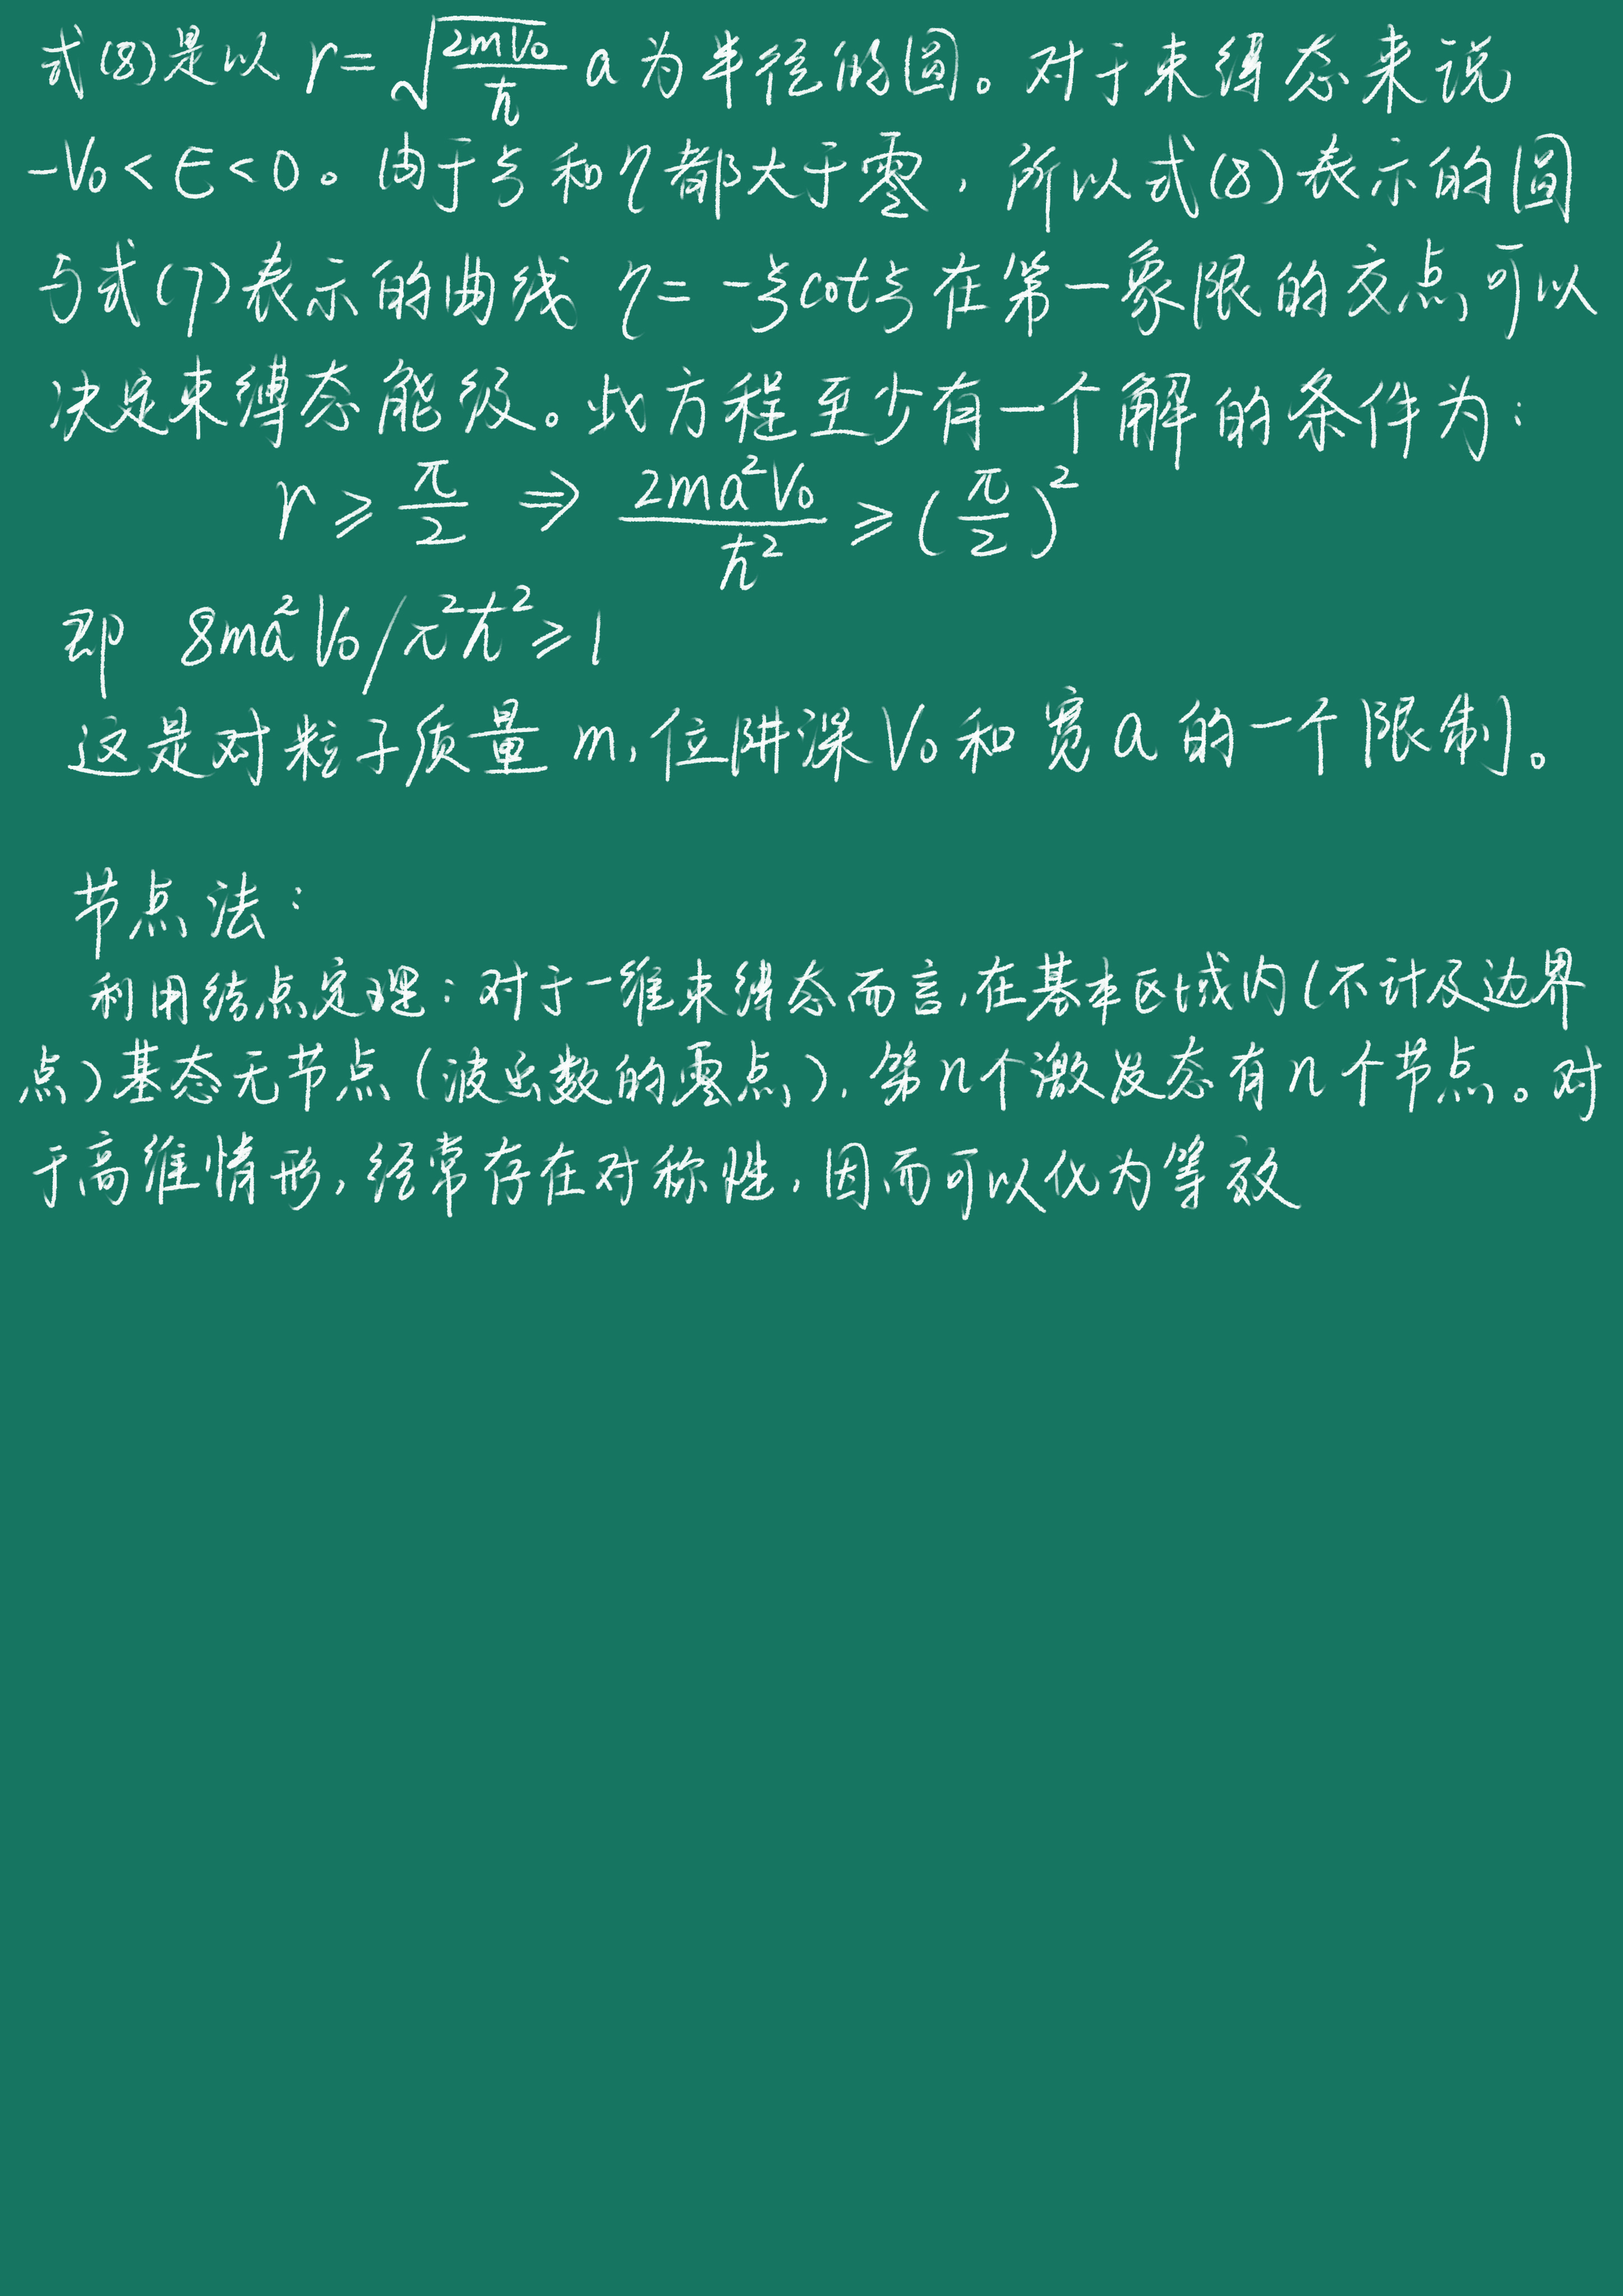 式(8)是以 r = √(2mV₀/ħ) a 为半径的圆。对于束缚态来说
-V₀ < E < 0。由于ξ和η都大于零，所以式(8)表示的圆
与式(7)表示的曲线 η = -ξcotξ在第一象限的交点可以
决定束缚态能级。此方程至少有一个解的条件为：
r ⩾ π/2 ⇒ 2ma²V₀/ħ² ⩾ (π/2)²
即 8ma²V₀/π²ħ² ⩾ 1
这是对粒子质量 m，位阱深 V₀ 和宽 a 的一个限制。
节点法：
利用结点定理：对于一维束缚态而言，在基本区域内(不计及边界
点)基态无节点(波函数的零点)，第n个激发态有n个节点。对
于高维情形，经常存在对称性，因而可以化为等效